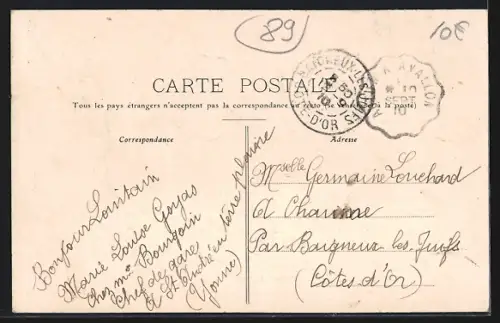 89
10€
CARTE POSTALE
Tous les pays étrangers n'acceptent pas la correspondance au recto (Se renseigner à la poste)
Correspondance
Adresse
BAIGNEUX-LES-JUIFS
CÔTE-D'OR
A AVALLON
SEPT
10
Bonjour Lointain
Marie Louise Goyas
Chez mr Bourgoin
Chef de gare
à St André en terre plaine
(Yonne)
Mselle Germaine Louchard
à Chaume
Par Baigneux les Juifs
(Côtes d'Or)